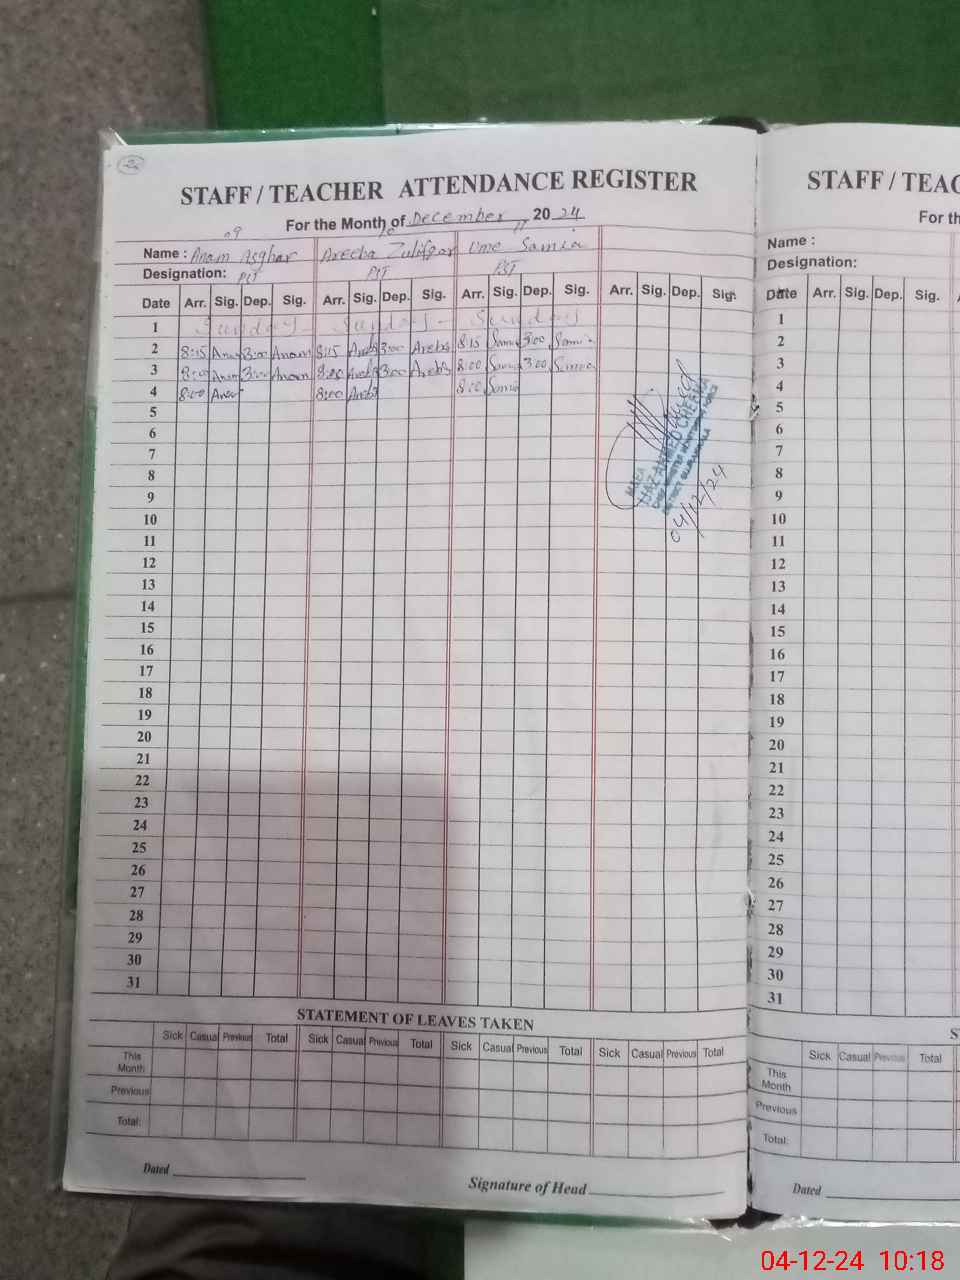 2
STAFF / TEACHER ATTENDANCE REGISTER
For the Month of December 2024
09 10 11
Name : Anam Asghar Areeba Zulifqar Ume Samia
Designation: PST PST PST
Date Arr. Sig. Dep. Sig. Arr. Sig. Dep. Sig. Arr. Sig. Dep. Sig. Arr. Sig. Dep. Sig.
1 Sunday - Sunday - Sunday
2 8:15 Anam 3:00 Anam 8:15 Areeba 3:00 Areeba 8:15 Samia 3:00 Samia
3 8:00 Anam 3:00 Anam 8:00 Areeba 3:00 Areeba 8:00 Samia 3:00 Samia
4 8:00 Anam 8:00 Areeba 8:00 Samia
5
6
7
8
9
10
11
12
13
14
15
16
17
18
19
20
21
22
23
24
25
26
27
28
29
30
31
MEA
AHMED CHEEMA
DISTRICT GUJRANWALA
04/12/24
STATEMENT OF LEAVES TAKEN
Sick Casual Previous Total Sick Casual Previous Total Sick Casual Previous Total Sick Casual Previous Total
This Month
Previous
Total:
Dated
Signature of Head
STAFF / TEAC
For th
Name :
Designation:
Date Arr. Sig. Dep. Sig.
1
2
3
4
5
6
7
8
9
10
11
12
13
14
15
16
17
18
19
20
21
22
23
24
25
26
27
28
29
30
31
Sick Casual Previous Total
This Month
Previous
Total:
Dated
04-12-24 10:18